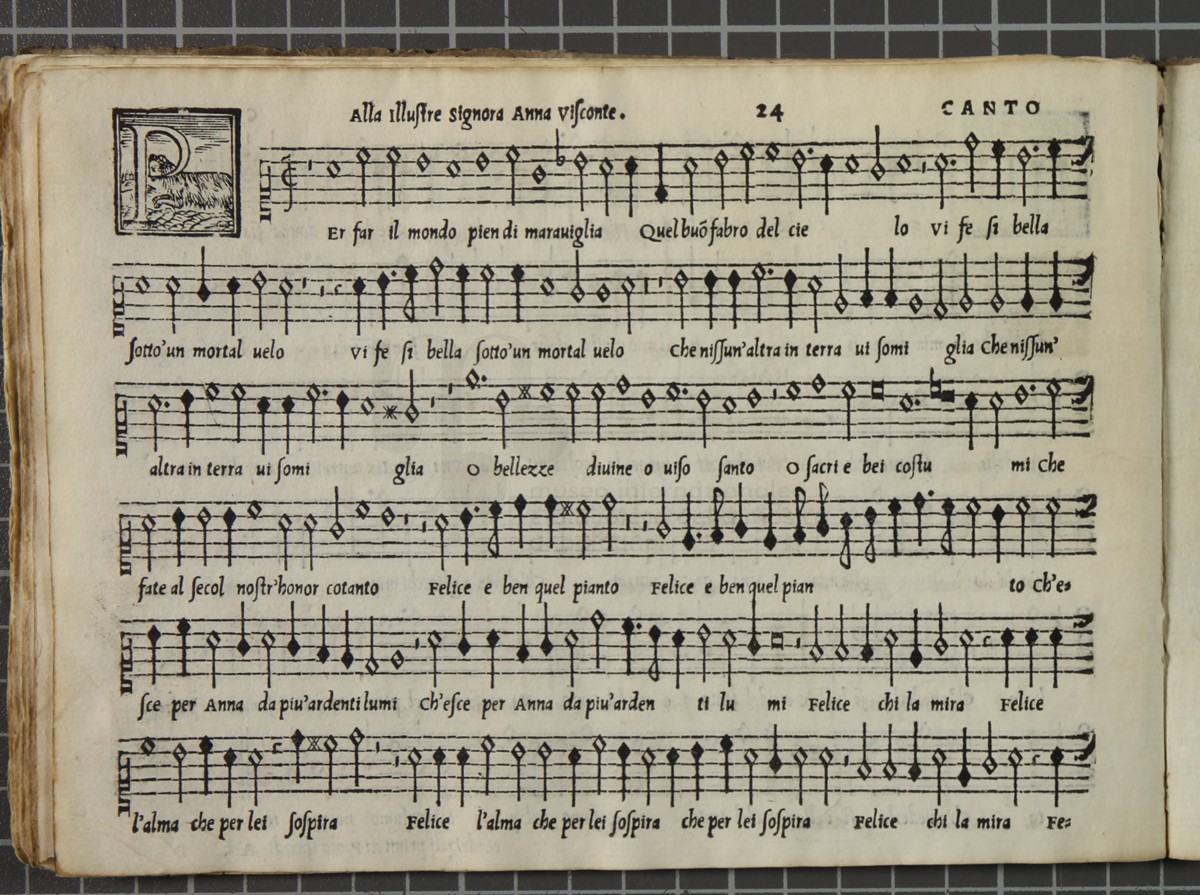 Alla Illuſtre Signora Anna Viſconte. 24 CANTO
PEr far il mondo pien di marauiglia Quel buõ fabro del cie lo vi fe ſi bella
ſotto'un mortal uelo vi fe ſi bella ſotto'un mortal uelo Che niſſun'altra in terra ui ſomi glia Che niſſun'
altra in terra ui ſomi glia O bellezze diuine o uiſo ſanto O ſacri e bei coſtu mi Che
fate al ſecol noſtr'honor cotanto Felice e ben quel pianto Felice e ben quel pian to Ch'e=
ſce per Anna da piu'ardenti lumi Ch'eſce per Anna da piu'arden ti lu mi Felice chi la mira Felice
l'alma che per lei ſoſpira Felice l'alma che per lei ſoſpira che per lei ſoſpira Felice chi la mira Fe=